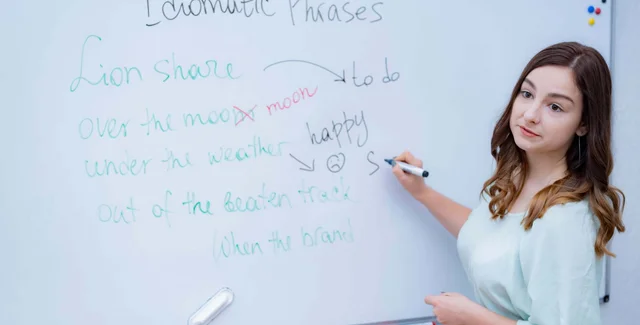 Idiomatic Phrases
Lion share to do
over the moo moon
happy
under the weather S
out of the beaten track
When the brand